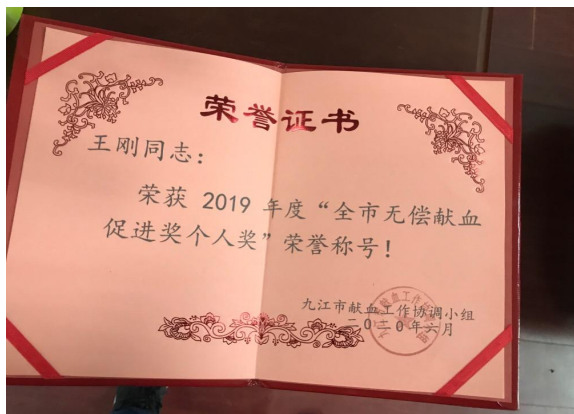 荣誉证书
王刚同志：
荣获 2019 年度“全市无偿献血
促进奖个人奖”荣誉称号！
九江市献血工作协调小组
二〇二〇年六月